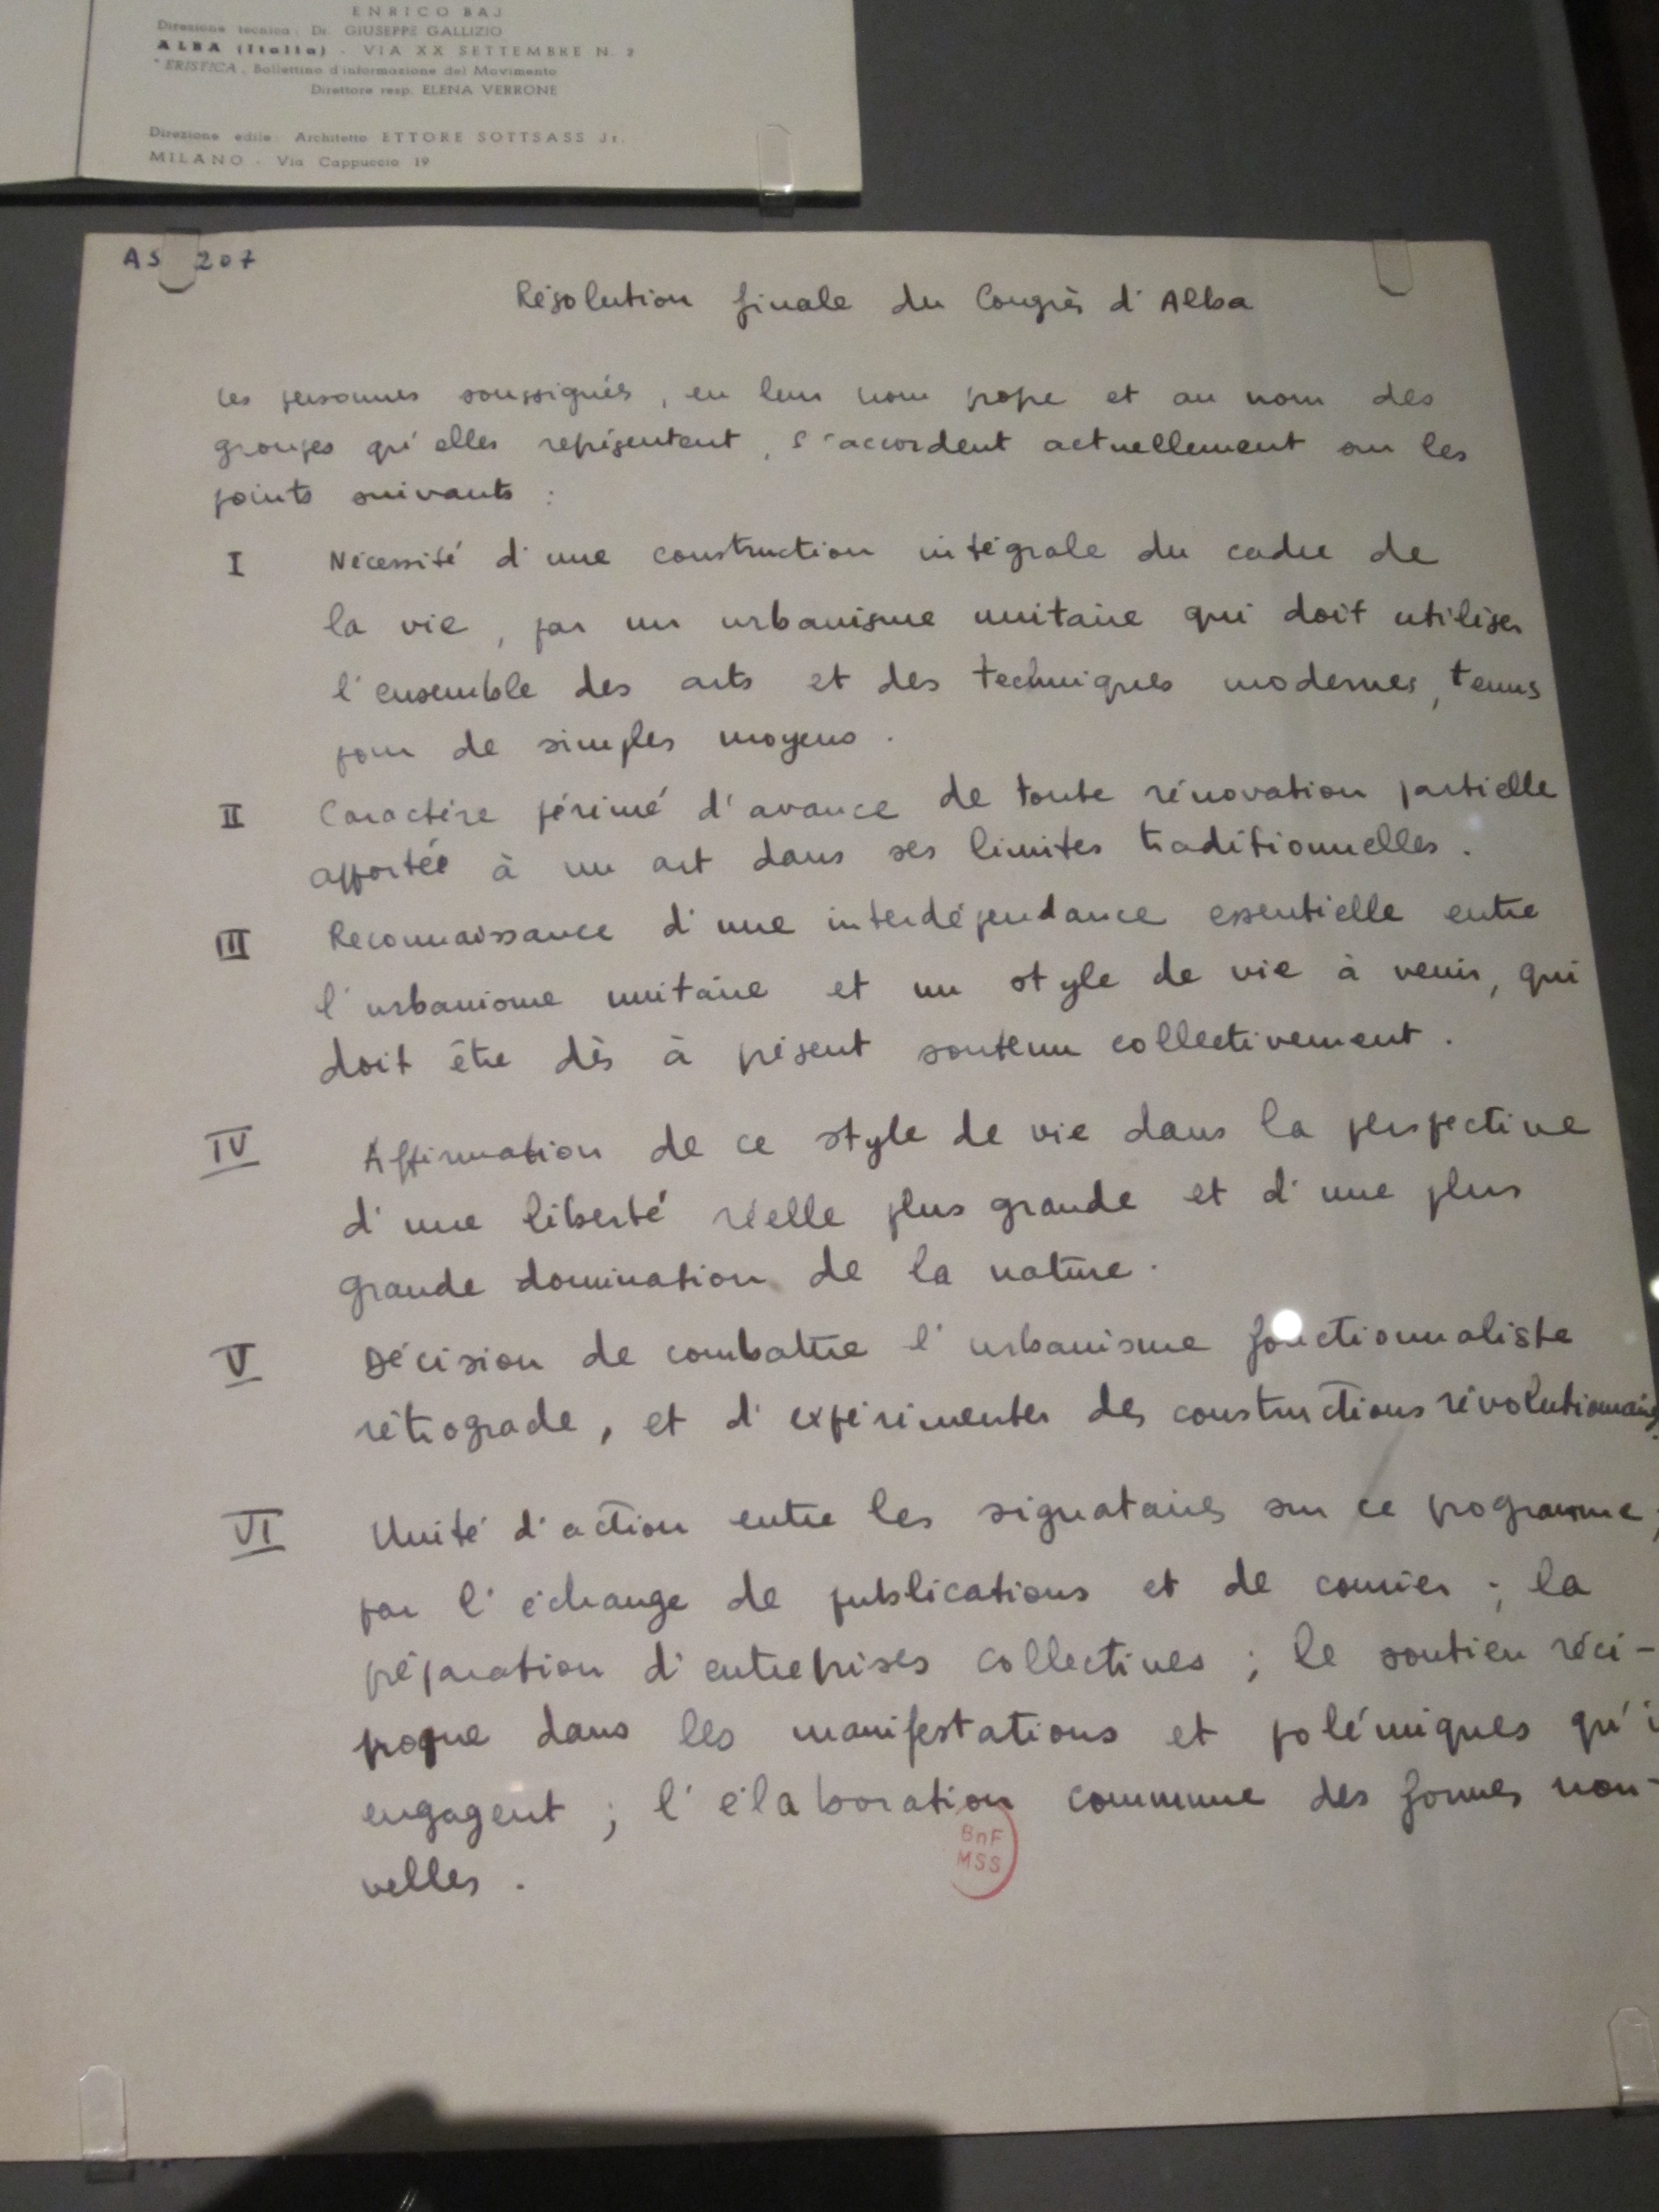 ENRICO BAJ
Direzione tecnica: Dr. GIUSEPPE GALLIZIO
ALBA (Italia) - VIA XX SETTEMBRE N. 2
"ERISTICA, Bollettino d'informazione del Movimento
Direttore resp. ELENA VERRONE
Direzione edile: Architetto ETTORE SOTTSASS Jr.
MILANO - Via Cappuccio 19
AS 207
Résolution finale du Congrès d'Alba
Les personnes soussignés, en leur nom propre et au nom des
groupes qu'elles représentent, s'accordent actuellement sur les
points suivants :
I Nécessité d'une construction intégrale du cadre de
la vie, par un urbanisme unitaire qui doit utiliser
l'ensemble des arts et des techniques modernes, tenus
pour de simples moyens.
II Caractère périmé d'avance de toute rénovation partielle
apportée à un art dans ses limites traditionnelles.
III Reconnaissance d'une interdépendance essentielle entre
l'urbanisme unitaire et un style de vie à venir, qui
doit être dès à présent soutenu collectivement.
IV Affirmation de ce style de vie dans la perspective
d'une liberté réelle plus grande et d'une plus
grande domination de la nature.
V Décision de combattre l'urbanisme fonctionnaliste
rétrograde, et d'expérimenter des constructions révolutionnaires.
VI Unité d'action entre les signataires sur ce programme,
par l'échange de publications et de courrier ; la
préparation d'entreprises collectives ; le soutien réci-
proque dans les manifestations et polémiques qu'i
engagent ; l'élaboration commune des formes nou-
velles.
BnF
MSS